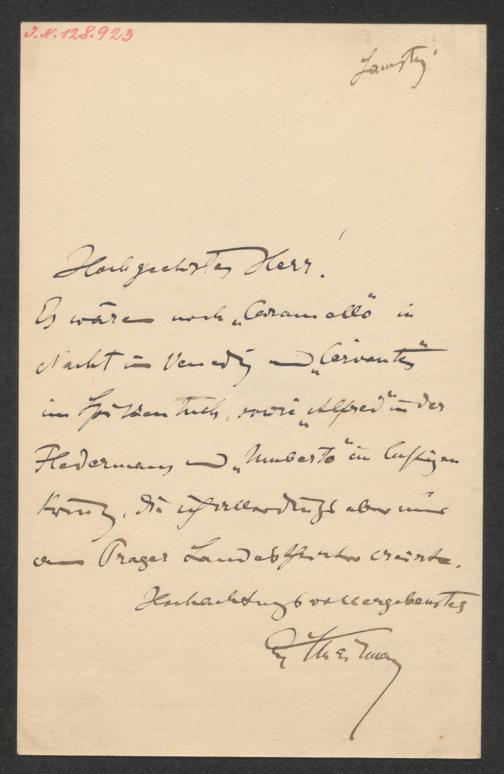 J.N. 128.923
Samstag
Hochgeehrter Herr!
Es wären noch „Caramello" in
Nacht in Venedig und „Cervantes"
im Spitzentuch, sowie „Alfred" in der
Fledermaus und „Umberto" im lustigen
Krieg, die ich allerdings aber nur
am Prager Landestheater creirte.
Hochachtungsvoll ergebenster